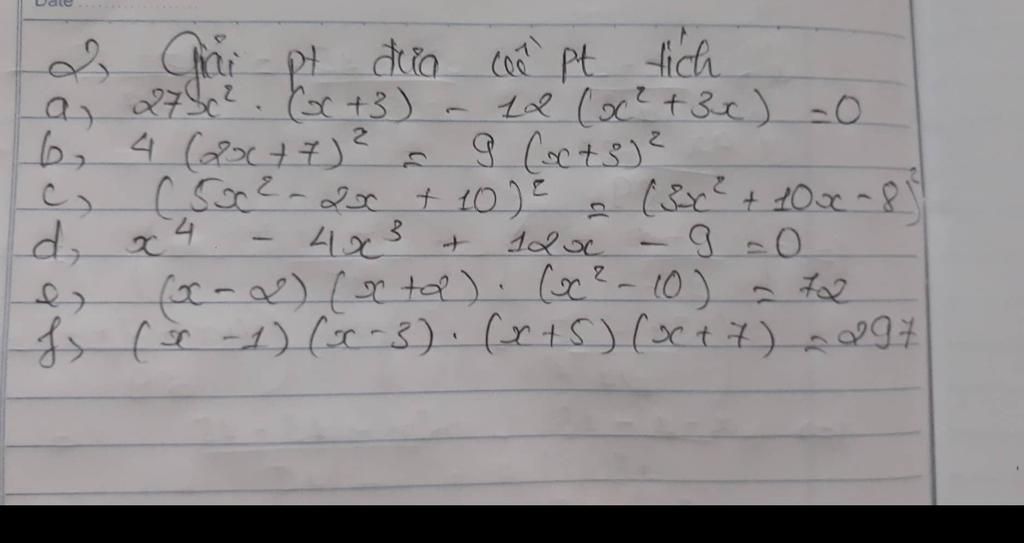 Date
2, Giải pt đưa về pt tích
a, 27x² . (x+3) - 12 (x² + 3x) = 0
b, 4 (2x+7)² = 9 (x+3)²
c, (5x² - 2x + 10)² = (3x² + 10x - 8)²
d, x⁴ - 4x³ + 12x - 9 = 0
e, (x-2)(x+2) . (x² - 10) = 72
f, (x-1)(x-3) . (x+5)(x+7) = 297